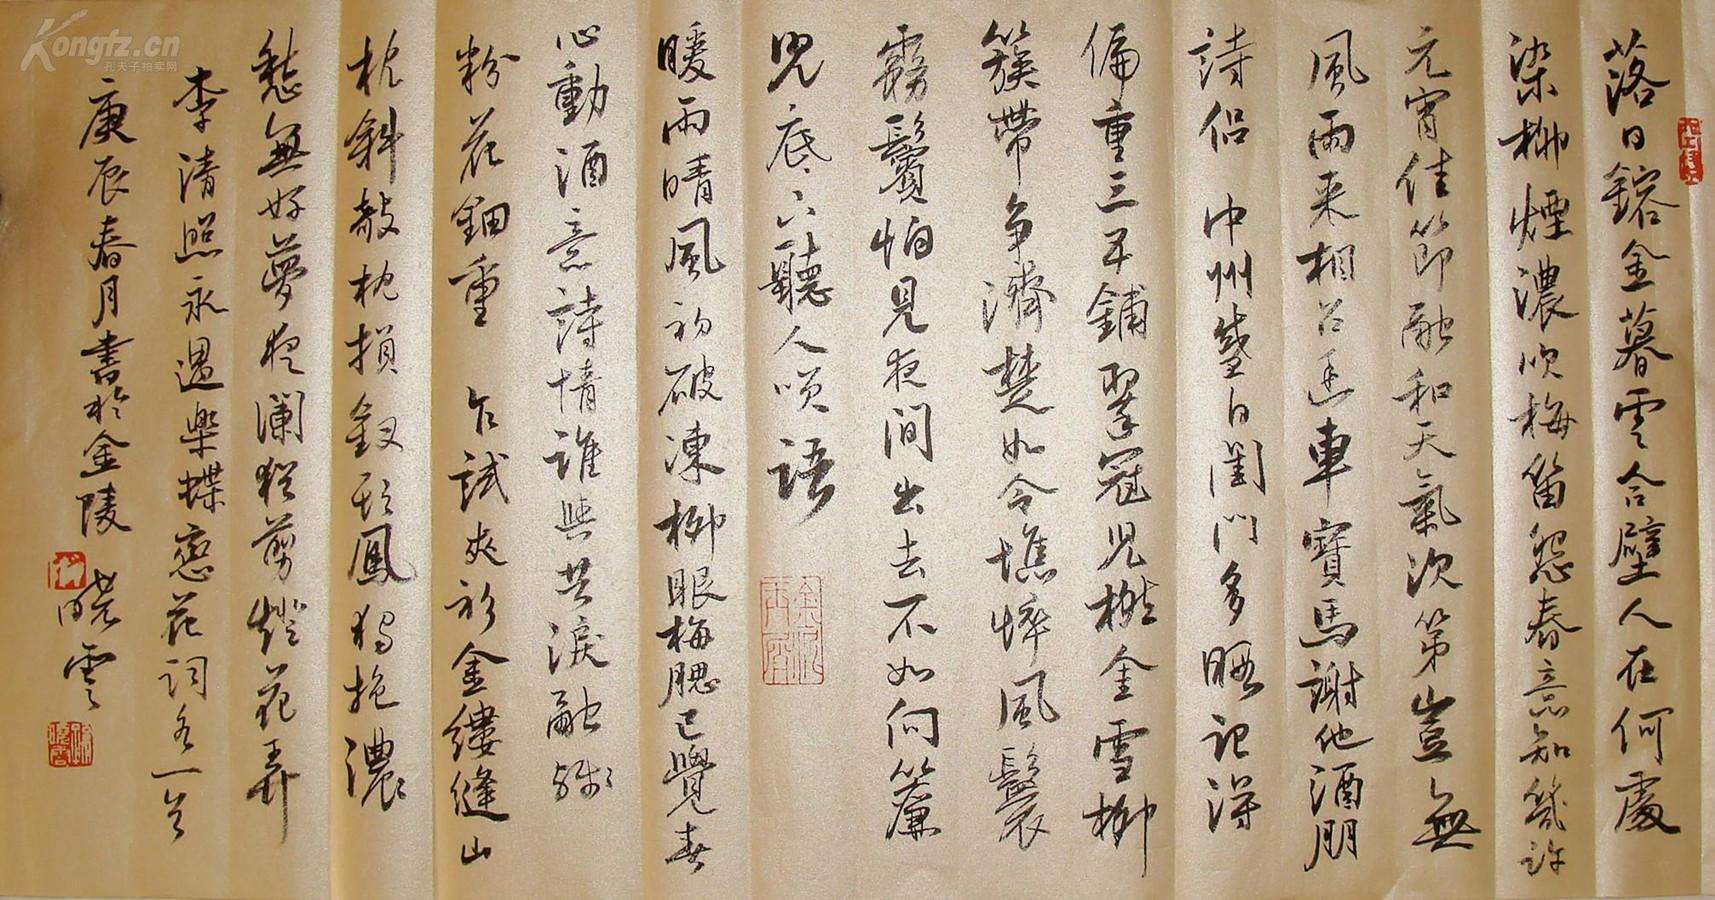 落日鎔金暮雲合璧人在何處
染柳煙濃吹梅笛怨春意知幾許
元宵佳節融和天氣次第豈無
風雨来相召香車寶馬謝他酒朋
詩侶 中州盛日閨門多暇記得
偏重三五鋪翠冠兒撚金雪柳
簇帶争濟楚如今憔悴風鬟
霧鬢怕見夜間出去不如向簾
兒底下聽人唉語
暖雨晴風初破凍柳眼梅腮已覺春
心動酒意詩情誰與共淚融殘
粉花鈿重 乍試夾衫金縷縫山
枕斜敧枕損釵頭鳳獨抱濃
愁無好夢夜闌猶剪燈花弄
李清照永遇樂蝶戀花詞各一首
庚辰春月書於金陵 曉雲
Kongfz.cn
孔夫子拍卖网